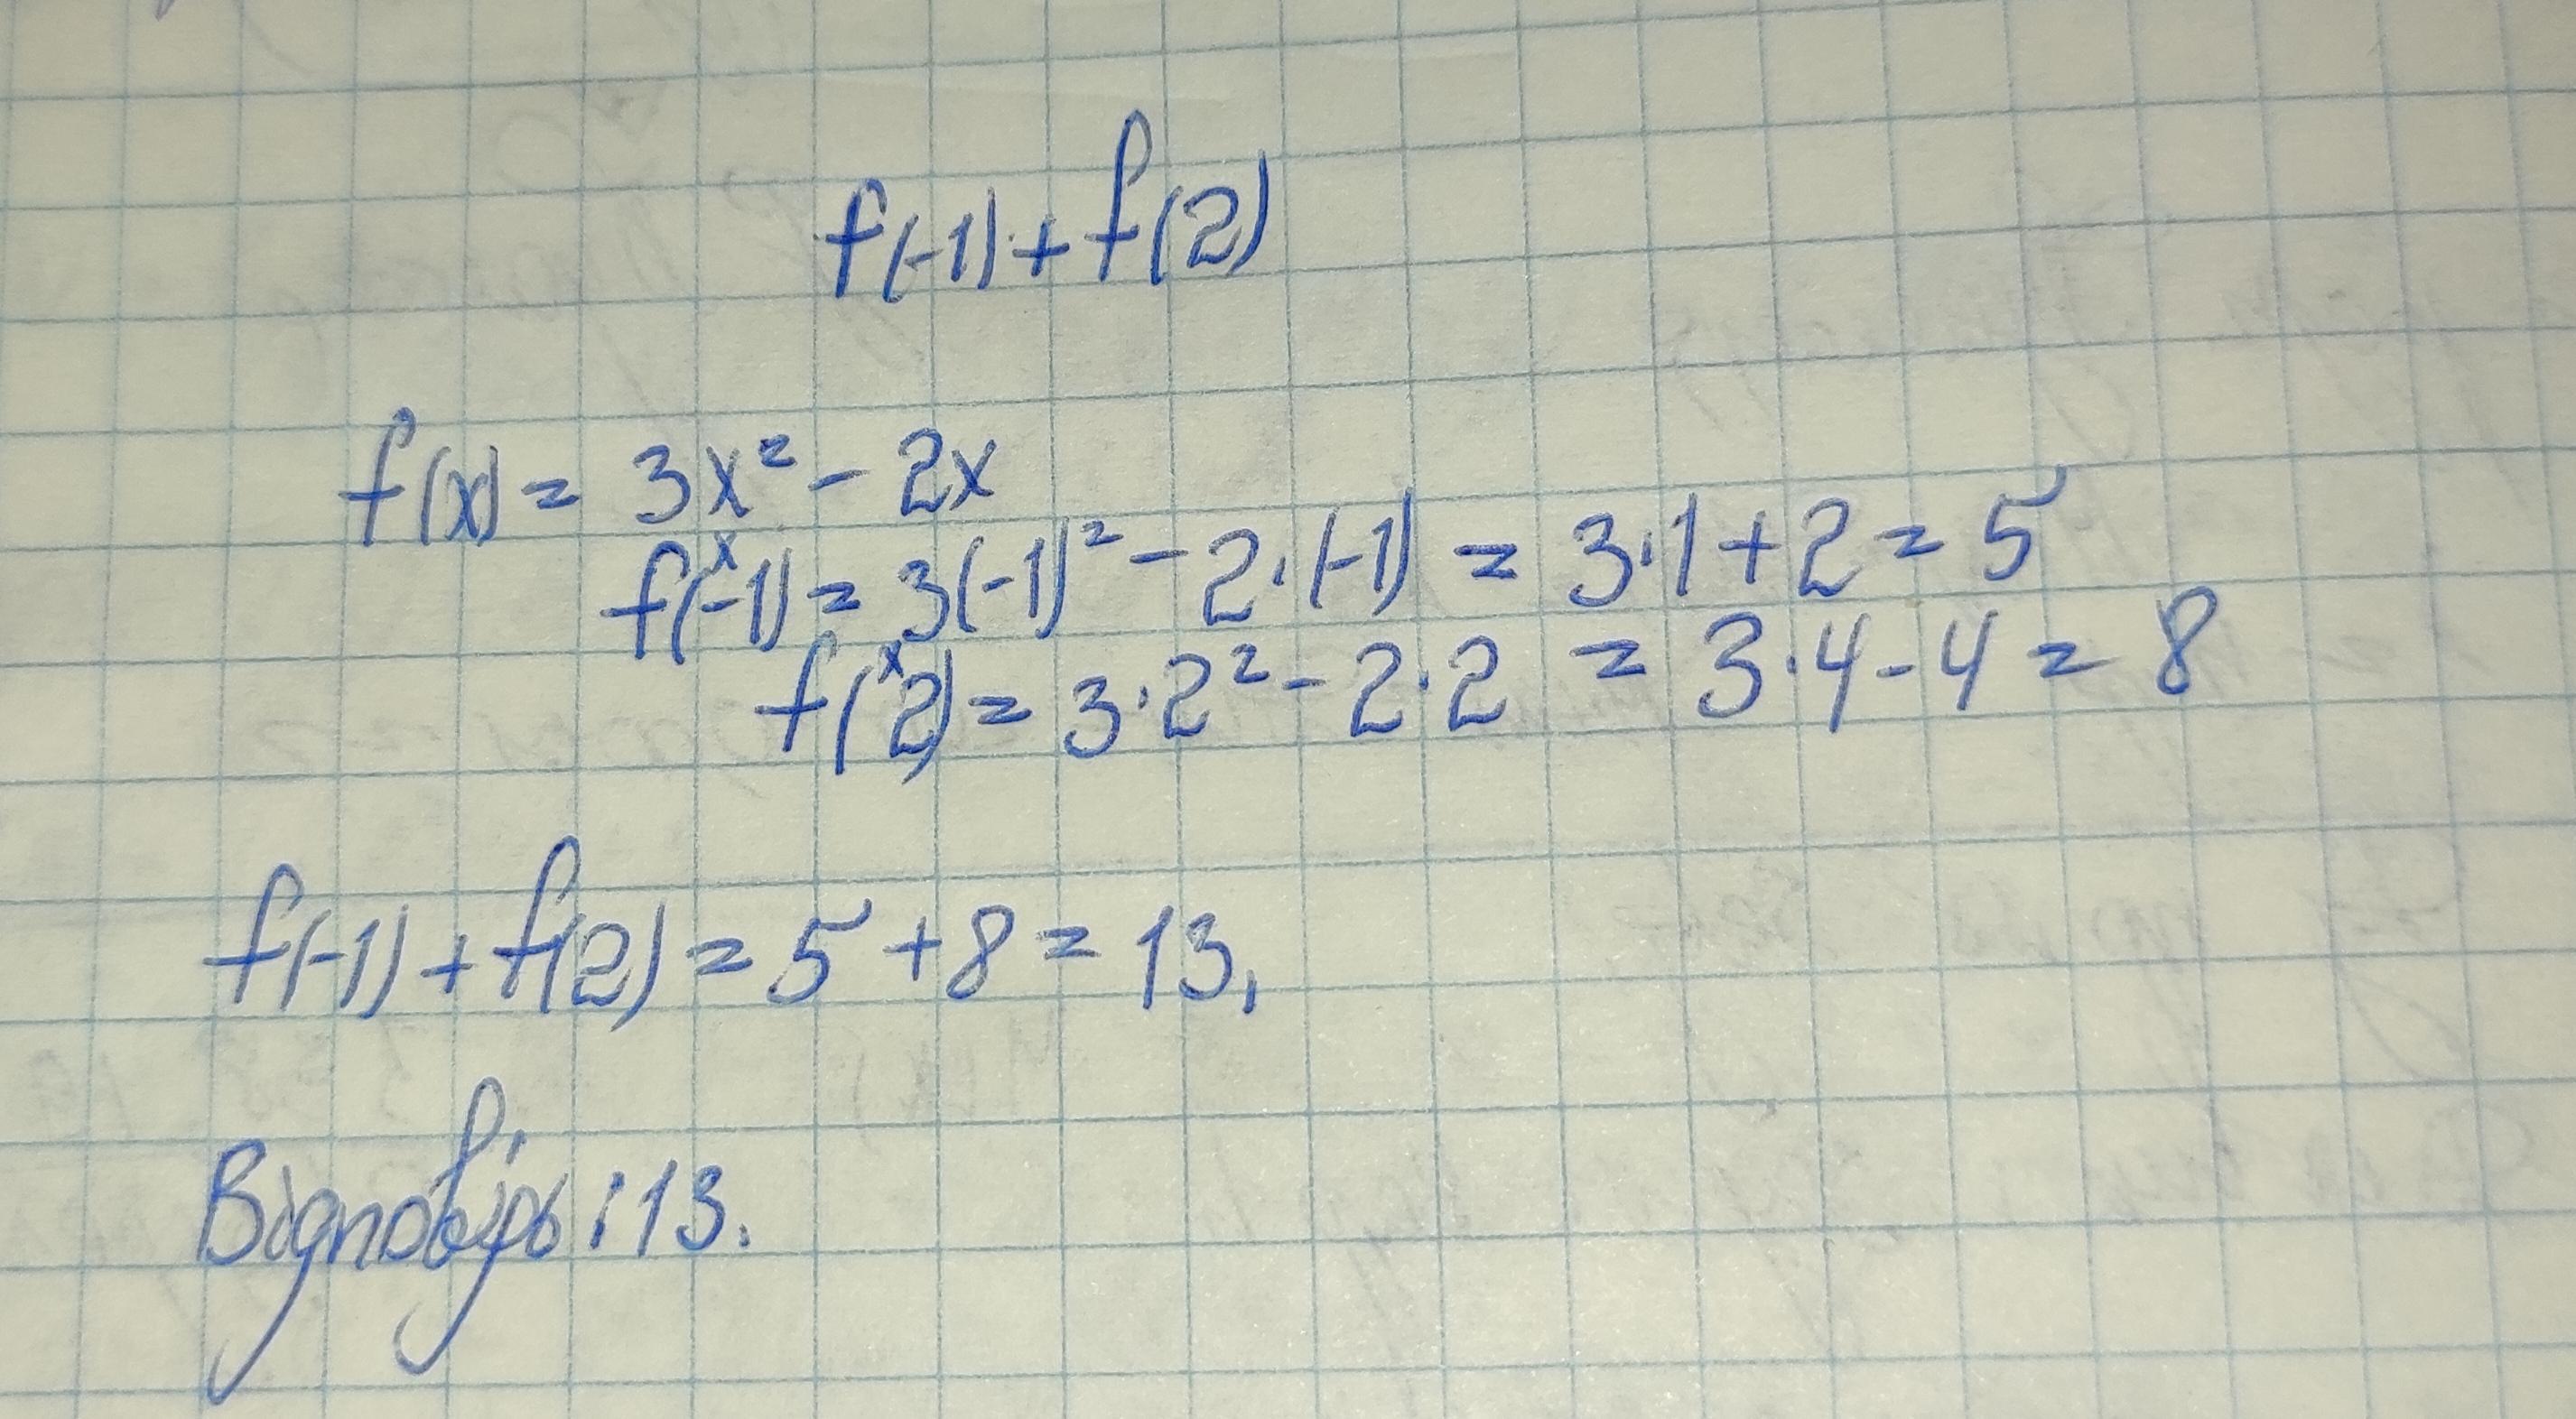 f(-1) + f(2)
f(x) = 3x² - 2x
x
f(-1) = 3(-1)² - 2·(-1) = 3·1 + 2 = 5
x
f(2) = 3·2² - 2·2 = 3·4 - 4 = 8
f(-1) + f(2) = 5 + 8 = 13,
Відповідь: 13.